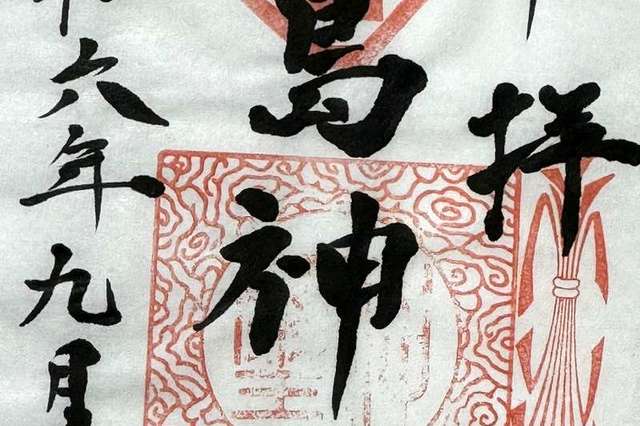 拝
島神
六年九月